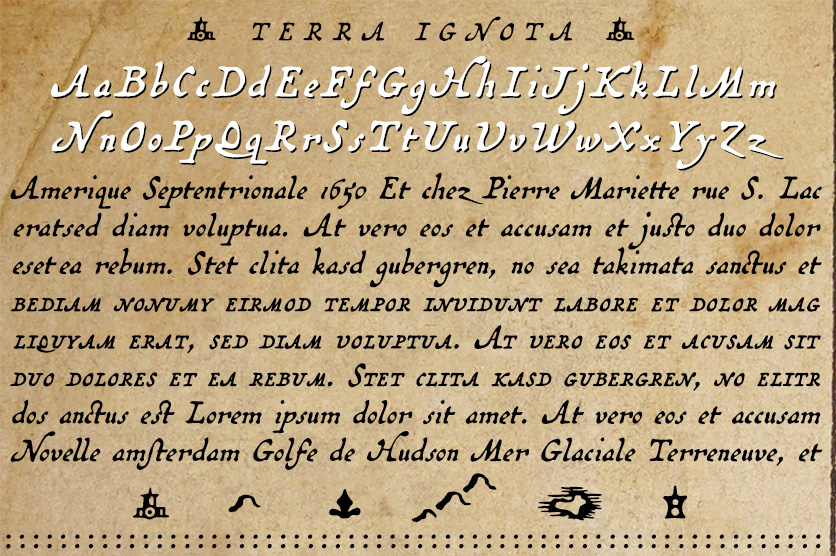 TERRA IGNOTA
AaBbCcDdEeFfGgHhIiJjKkLlMm
NnOoPpQqRrSsTtUuUvWwXxYyZz
Amerique Septentrionale 1650 Et chez Pierre Mariette rue S. Lac
eratsed diam voluptua. At vero eos et accusam et justo duo dolor
esetea rebum. Stet clita kasd gubergren, no sea takimata sanctus et
BEDIAM NONUMY EIRMOD TEMPOR INVIDUNT LABORE ET DOLOR MAG
LIQUYAM ERAT, SED DIAM VOLUPTUA. AT VERO EOS ET ACUSAM SIT
DUO DOLORES ET EA REBUM. STET CLITA KASD GUBERGREN, NO ELITR
dos anctus est Lorem ipsum dolor sit amet. At vero eos et accusam
Novelle amſterdam Golfe de Hudson Mer Glaciale Terreneuve, et